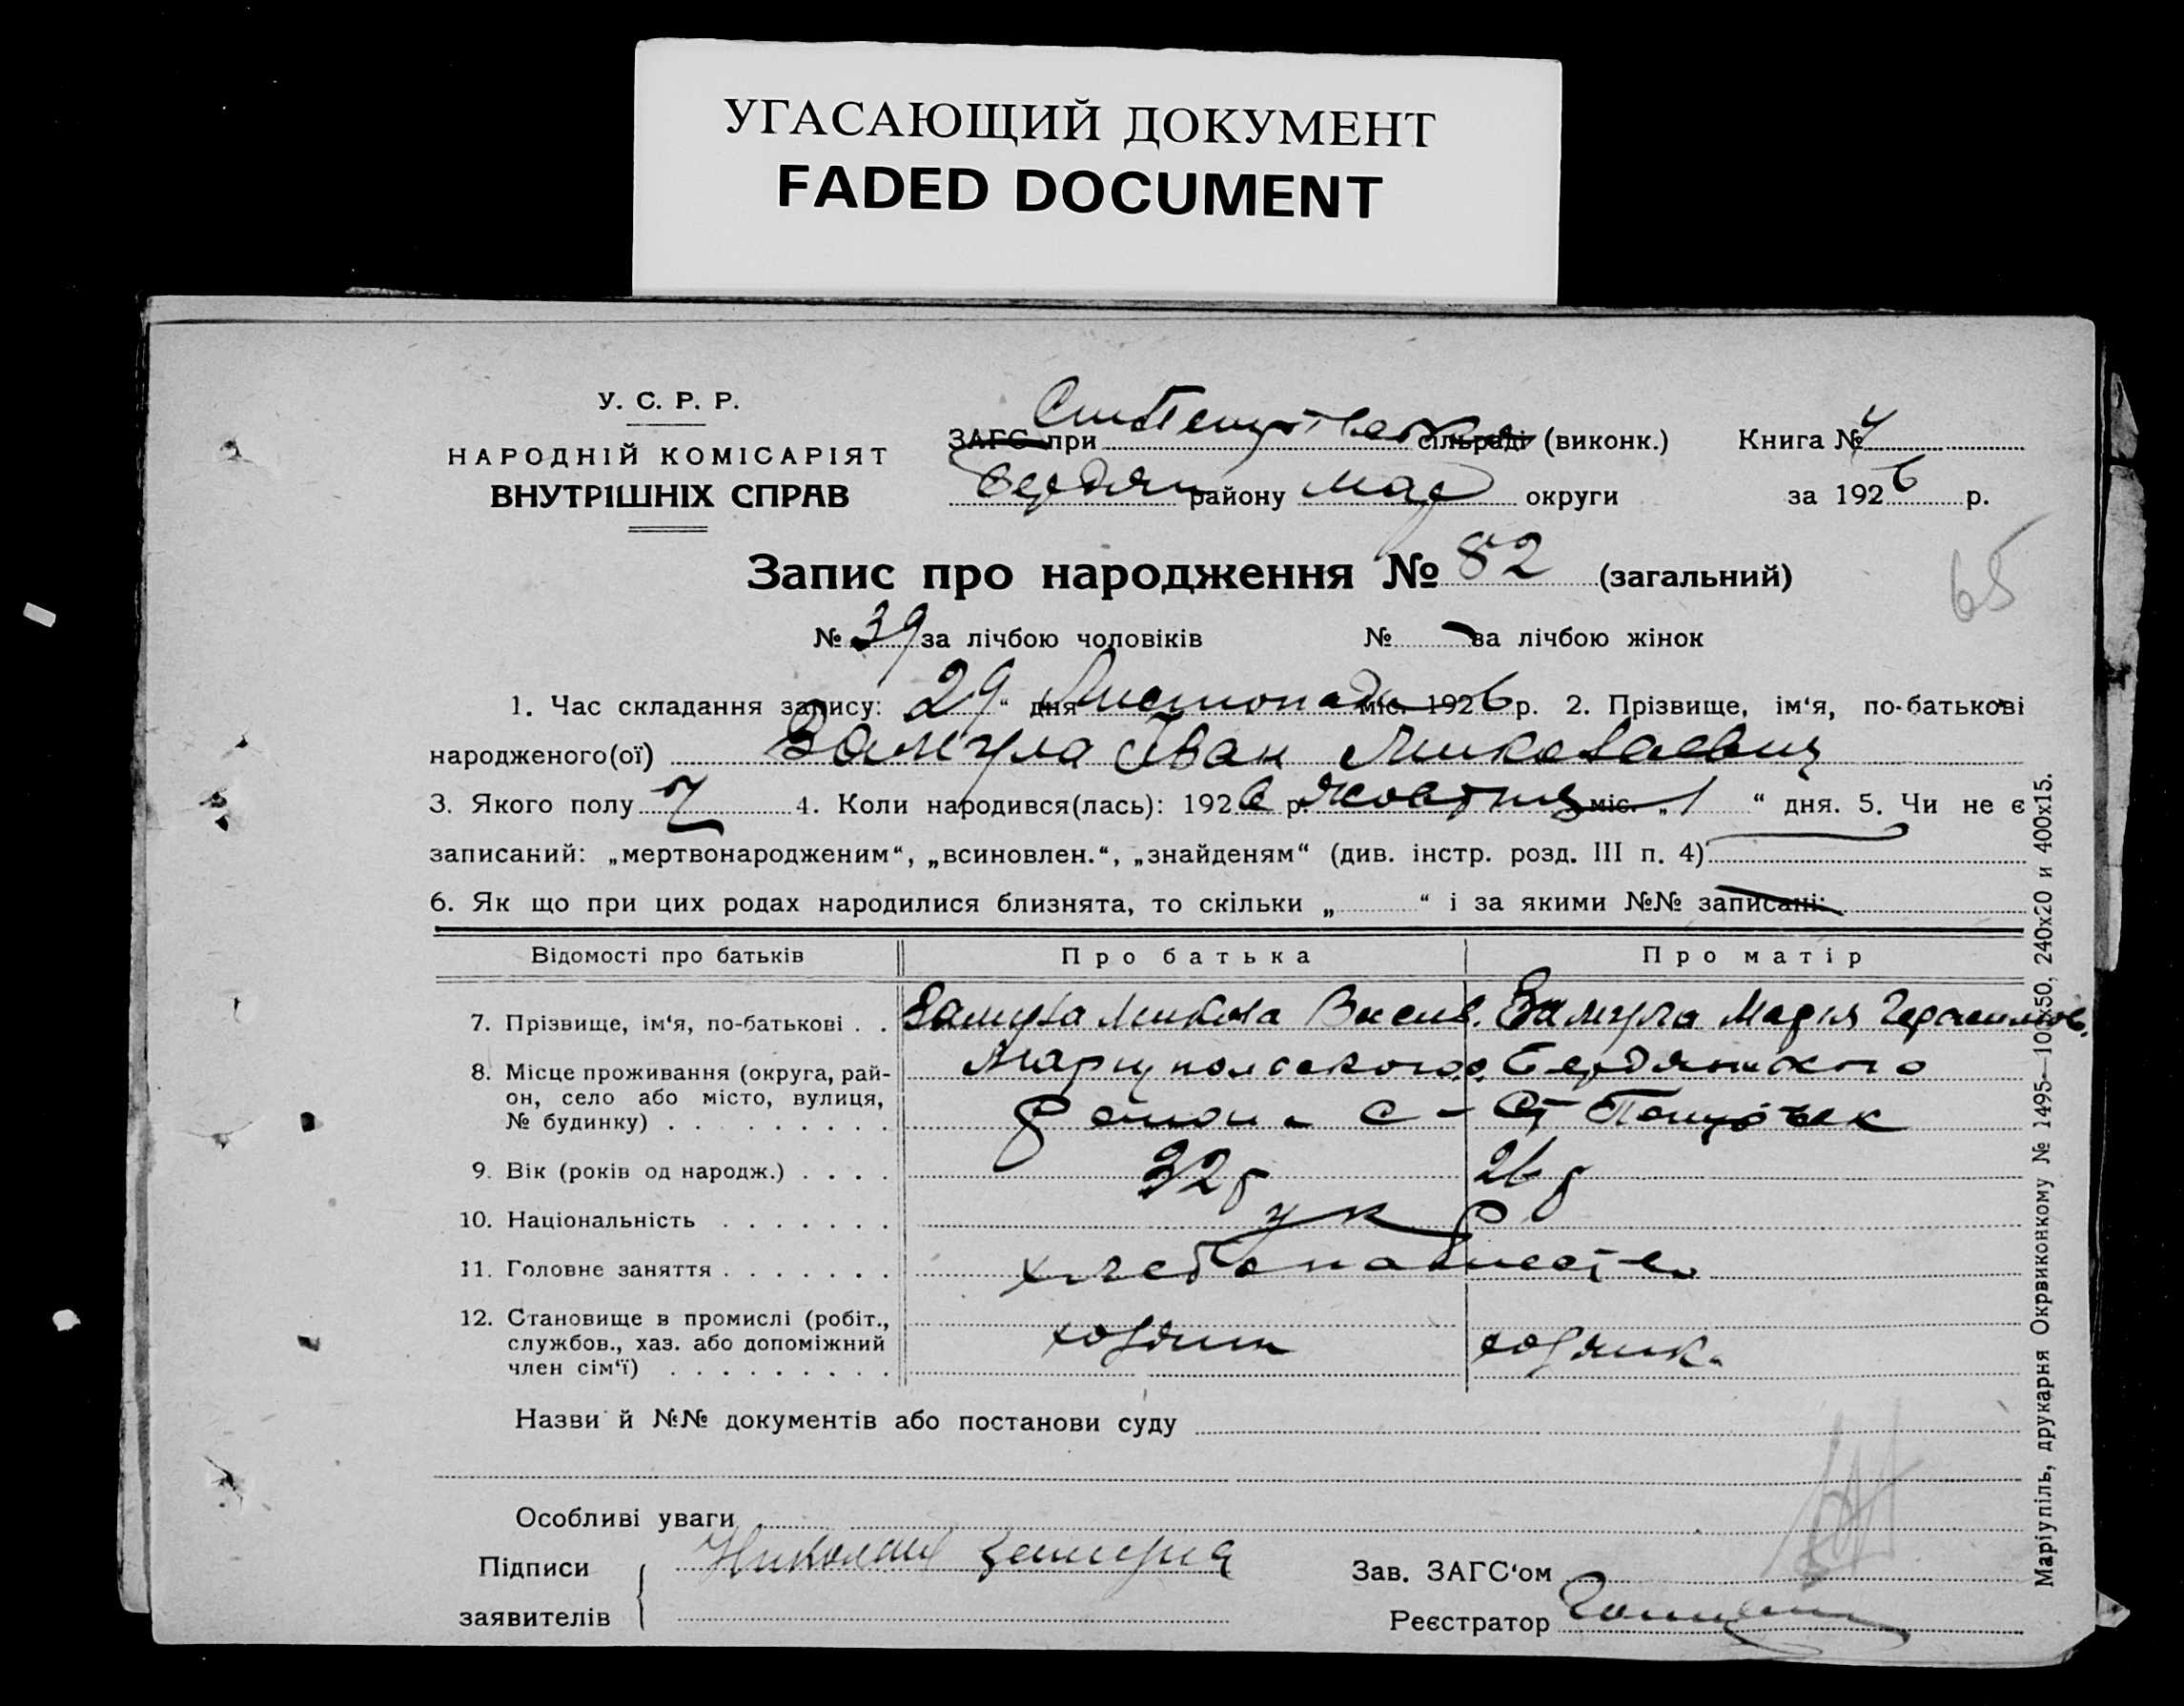 УГАСАЮЩИЙ ДОКУМЕНТ
FADED DOCUMENT
У. С. Р. Р.
НАРОДНІЙ КОМІСАРІЯТ
ВНУТРІШНІХ СПРАВ
ЗАГС при сільраді (виконк.) Книга № 4
Бердян району Мар округи за 1926 р.
Запис про народження № 82 (загальний)
65
№ 39 за лічбою чоловіків № — за лічбою жінок
1. Час складання запису: 29 “ дня Листопада міс. 1926 р. 2. Прізвище, ім‘я, по-батькові
народженого(ої) Замула Іван Миколаевич
3. Якого полу ч 4. Коли народився(лась): 1926 р. Жовтня міс. „ 1 “ дня. 5. Чи не є
записаний: „мертвонародженим“, „всиновлен.“, „знайденям“ (див. інстр. розд. III п. 4)
6. Як що при цих родах народилися близнята, то скільки „ “ і за якими №№ записані:
Відомості про батьків Про батька Про матір
7. Прізвище, ім‘я, по-батькові . . Замула Микола Васив. Замула Мария Герасимов.
8. Місце проживання (округа, рай- Мариупольского о. Бердянского
он, село або місто, вулиця, района с - Ст
№ будинку) . . . . . . . . .
9. Вік (років од народж.) . . . . 32 р 26 р
10. Національність . . . . . . . ук
11. Головне заняття . . . . . . . хлебопашество
12. Становище в промислі (робіт.,
службов., хаз. або допоміжний хозяин хозяика
член сім‘ї) . . . . . . . . .
Назви й №№ документів або постанови суду
Особливі уваги
Підписи Николай Замула Зав. ЗАГС‘ом
заявителів Реєстратор
Маріупіль, друкарня Окрвиконкому № 1495—100х50, 240х20 и 400х15.